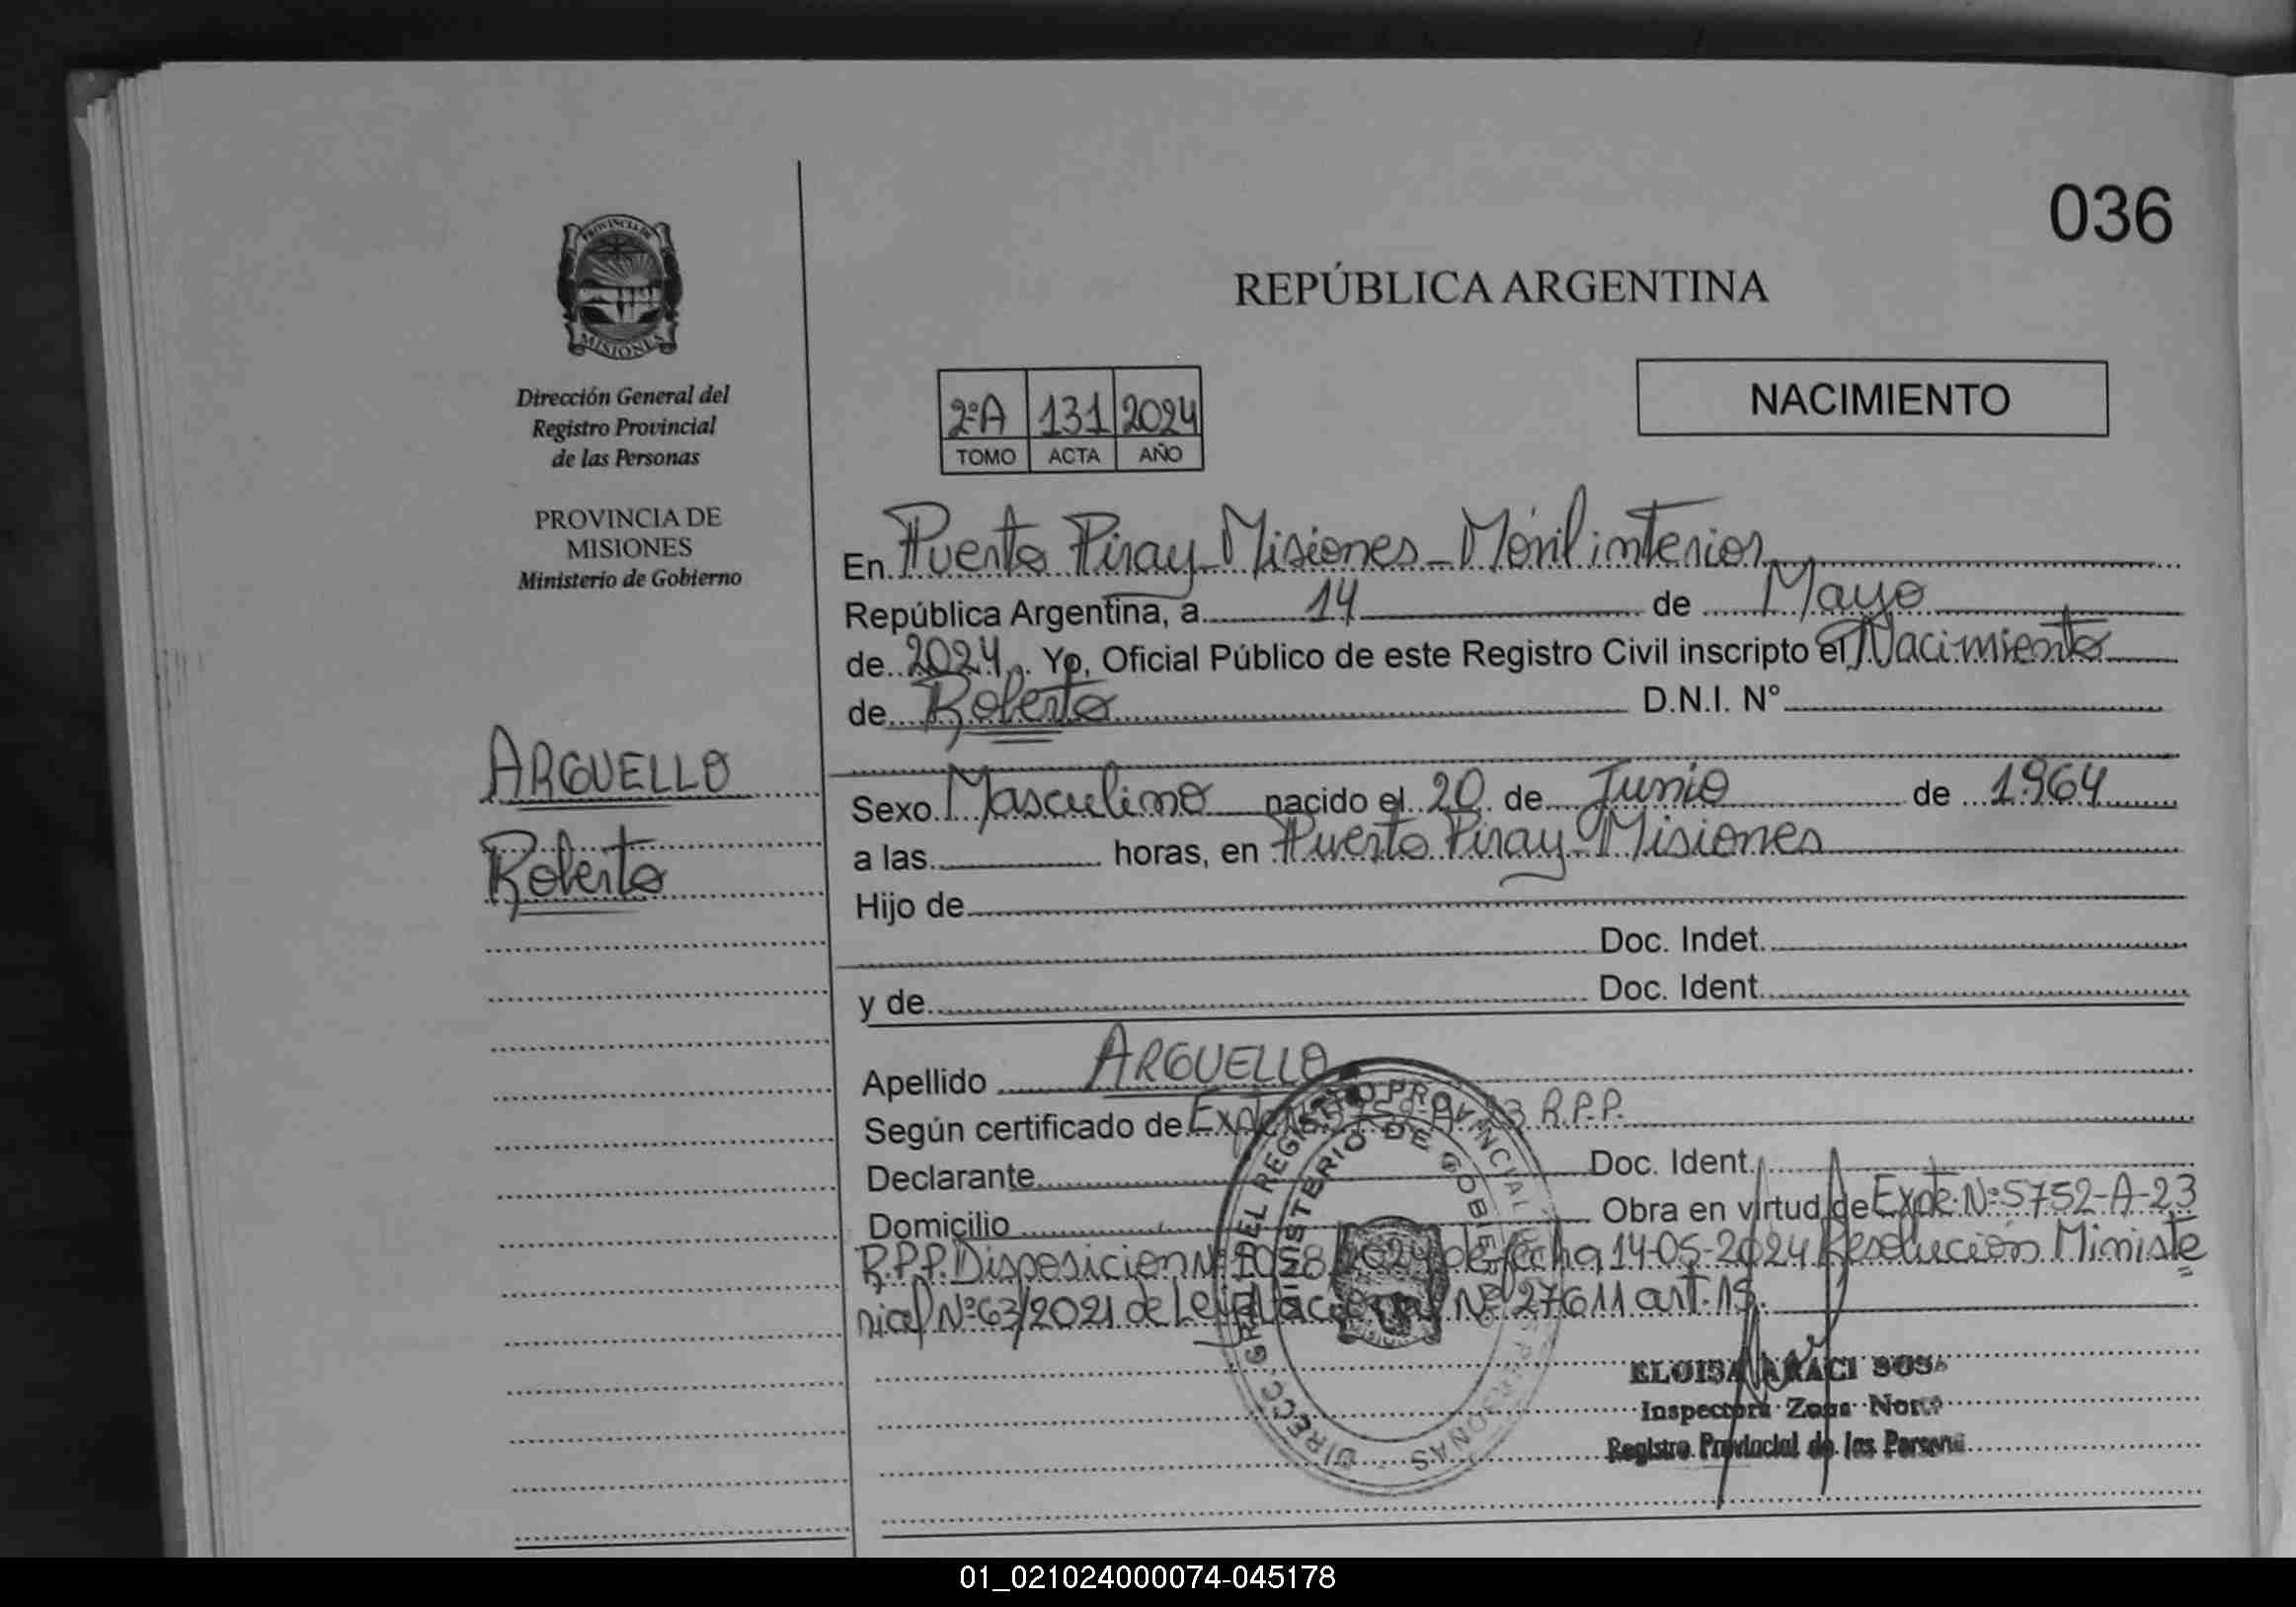 036
REPÚBLICA ARGENTINA
PROVINCIA DE
MISIONES
Dirección General del
Registro Provincial
de las Personas
PROVINCIA DE
MISIONES
Ministerio de Gobierno
ARGUELLO
Roberto
2ºA 131 2024
TOMO ACTA AÑO
NACIMIENTO
En Puerto Piray - Misiones - Móvil interior
República Argentina, a 14 de Mayo
de 2024. Yo, Oficial Público de este Registro Civil inscripto el Nacimiento
de Roberto D.N.I. Nº
Sexo Masculino nacido el 20 de Junio de 1964
a las horas, en Puerto Piray - Misiones
Hijo de
Doc. Indet.
y de Doc. Ident.
Apellido ARGUELLO
Según certificado de Expte R.P.P.
Declarante Doc. Ident.
Domicilio Obra en virtud de Expte. Nº 5752-A-23
R.P.P. Disposicion de fecha 14-05-2024 Resolución Ministe
rial Nº 63/2021 de Ley Nº 27611 art. 15.
DIRECC. GRAL. DEL REGISTRO PROVINCIAL DE LAS PERSONAS
MINISTERIO DE GOBIERNO
ELOISA ARACI SOSA
Inspectora Zona Norte
Registro Provincial de las Persona
01_021024000074-045178